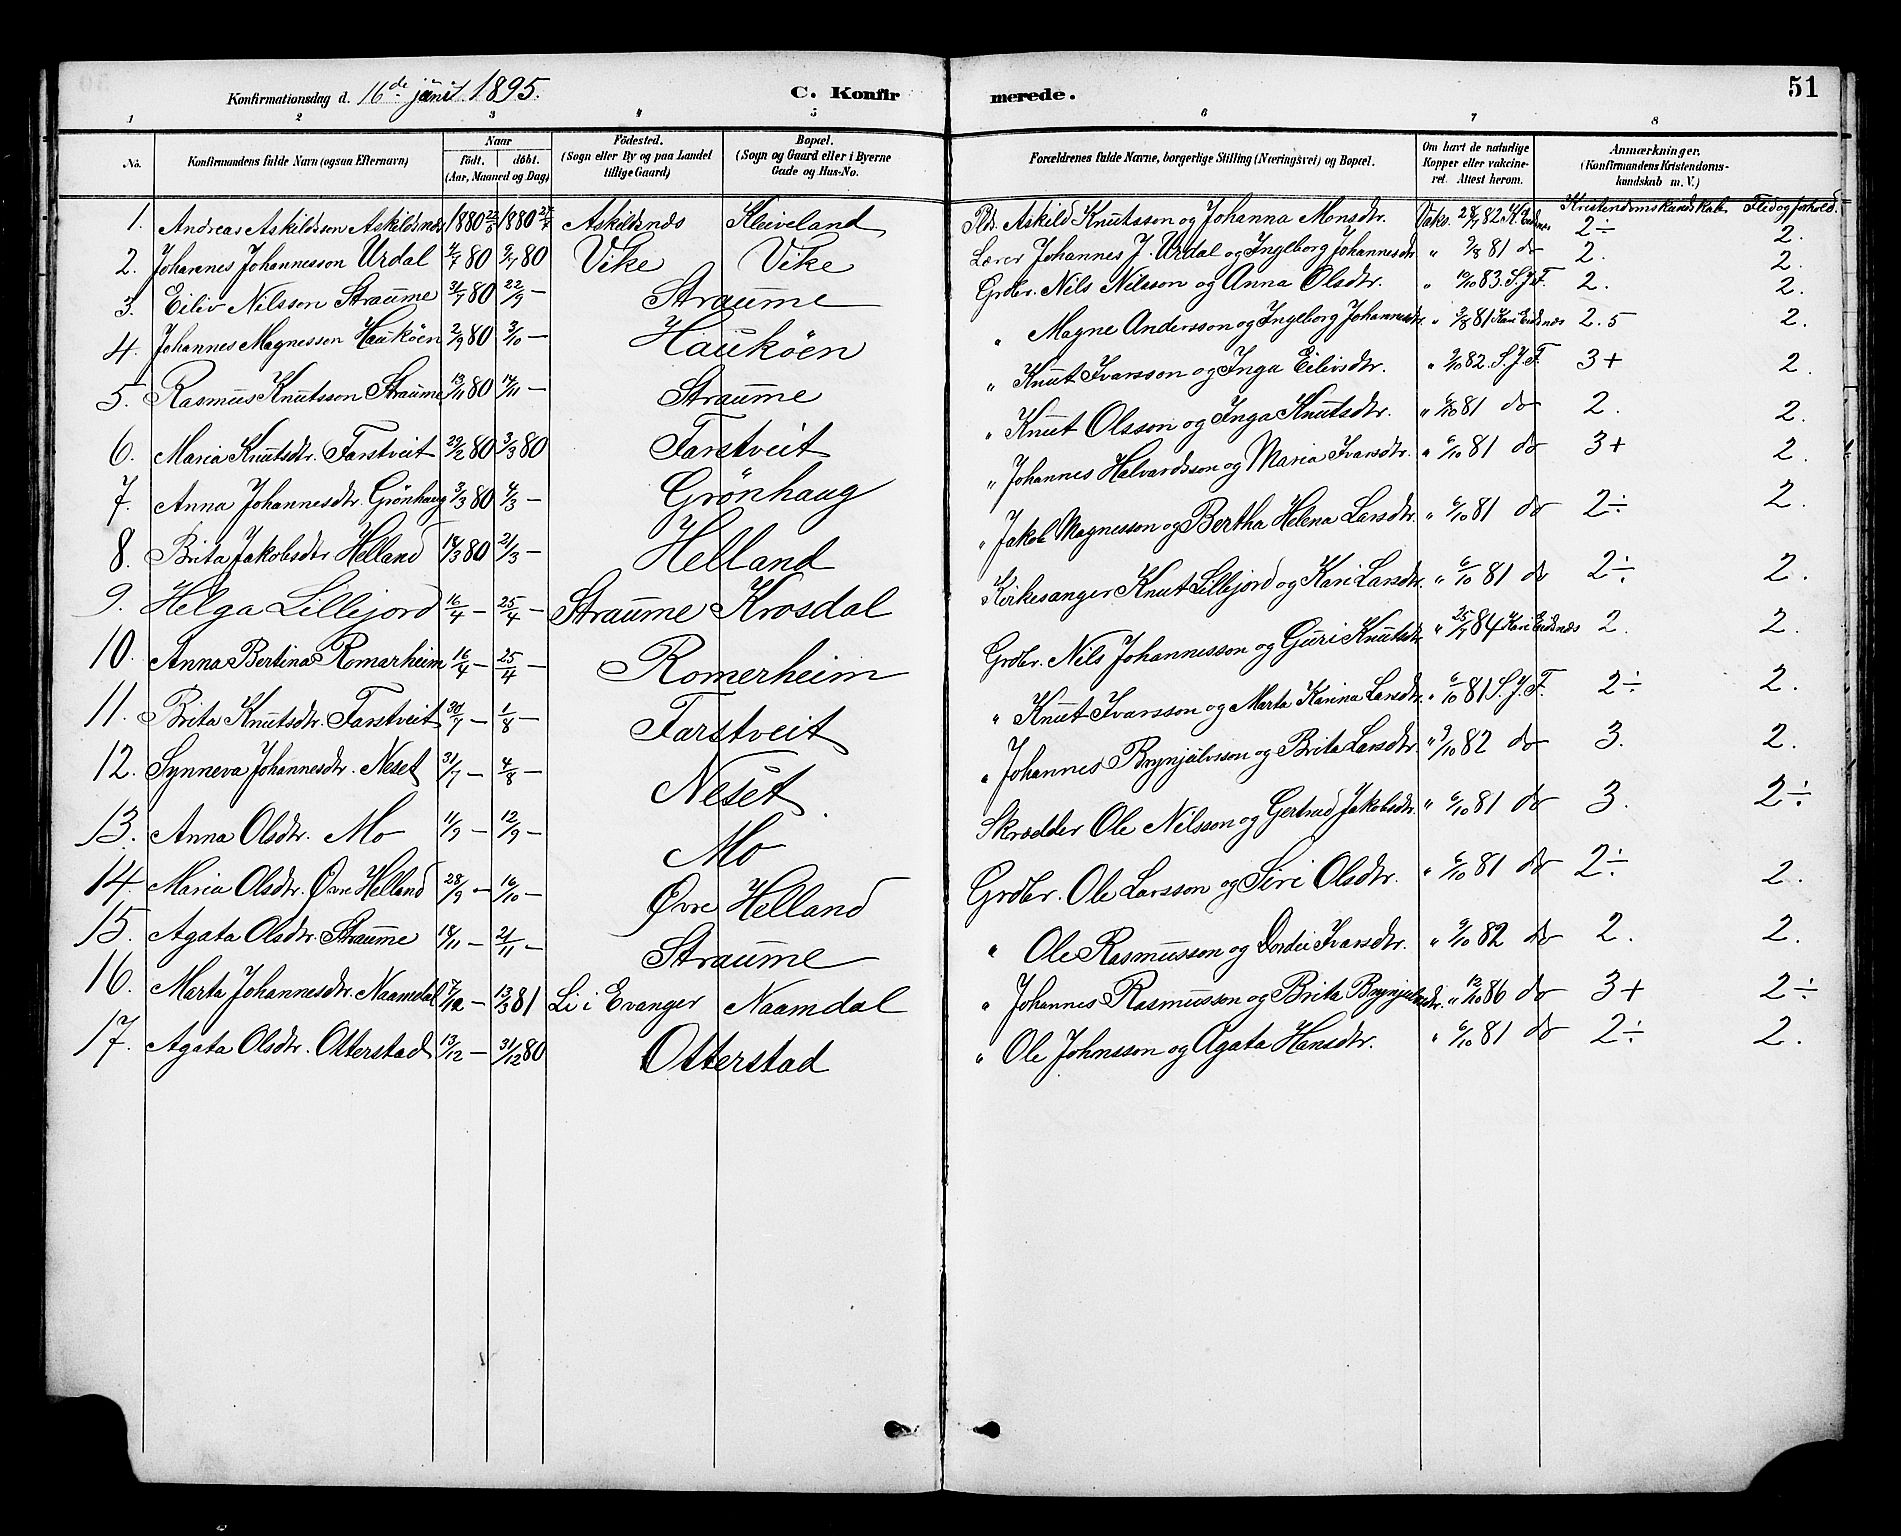 Konfirmationsdag d. 16de juni 1895. C. Konfirmerede. 51
1 2 3 4 5 6 7 8
No. Konfirmandens fulde Navn (ogsaa Efternavn) Naar födt. döbt. (Aar, Maaned og Dag) Födested. (Sogn eller By og paa Landet tillige Gaard) Bopæl. (Sogn og Gaard eller i Byerne Gade og Hus-No. Forældrenes fulde Navne, borgerlige Stilling (Næringsvei) og Bopæl. Om havt de naturlige Kopper eller vakcineret. Attest herom. Anmærkninger. (Konfirmandens Kristendomskundskab m. V.)
Kristendomskundskab Flid og forhold.
1. Andreas Askildsson Askildsnes 1880 22/5 1880 Askildsnes Kleiveland Askild Knutsson og Johanna Monsdtr. Vaks. 82 2÷ 2.
2. Johannes Johannesson Urdal 2/7 80 9/7 80 Vike Vike Lærer Johannes J. Urdal og Ingeborg Johannesdtr. " 9/8 81 do 2. 2.
3. Eiliv Nilsson Straume 31/7 80 22/9 — Straume Grdbr. Nils Nilsson og Anna Olsdtr. " 10/10 83. S.J.F. 2. 2.
4. Johannes Magnesson Hauköen 2/9 80 3/10 — Hauköen " Magne Andersson og Ingeborg Johannesdtr. " 9/8 81 Kari Eidsnæs 2.5 2.
5. Rasmus Knutsson Straume 13/11 80 14/11 — Straume " Knut Ivarsson og Inga Eilivsdtr. " 9/10 82. S.J.F. 3+ 2.
6. Maria Knutsdtr. Farstveit 29/2 80 3/3 80 Farstveit " Knut Olsson og Inga Knutsdtr. " 6/10 81 do 2. 2.
7. Anna Johannesdtr. Grönhaug 3/3 80 4/3 — Grönhaug " Johannes Halvardsson og Maria Ivarsdtr. " 6/10 81 do 3+ 2.
8. Brita Jakobsdtr Helland 14/3 80 21/3 — Helland " Jakob Magnesson og Bertha Helena Larsdtr. " 6/10 81 do 2÷ 2.
9. Helga Lillejord 16/4 — 25/4 — Straume Krosdal Kirkesanger Knut Lillejord og Kari Larsdtr. " 6/10 81 do 2÷ 2.
10. Anna Bertina Romarheim 16/4 — 25/4 — Romerheim Grdbr. Nils Johannesson og Guri Knutsdtr. " 25/7 84 Kari Eidsnæs 2. 2.
11. Brita Knutsdtr. Farstveit 30/7 — 1/8 — Farstveit " Knut Ivarsson og Marta Karina Larsdtr. " 6/10 81 S.J.F. 2÷ 2.
12. Synneva Johannesdtr. Neset 31/7 — 4/8 — Neset " Johannes Brynjulvsson og Brita Larsdtr. " 9/10 82 do 3. 2.
13. Anna Olsdtr. Mo 11/9 — 12/9 — Mo Skrædder Ole Nilsson og Gertrud Jakobsdtr. " 6/10 81 do 3. 2÷
14. Maria Olsdtr. Øvre Helland 28/9 — 16/10 — Øvre Helland Grdbr. Ole Larsson og Siri Olsdtr. " 6/10 81 do 2÷ 2.
15. Agata Olsdtr. Straume 18/11 — 21/11 — Straume " Ole Rasmusson og Dordei Ivarsdtr. " 9/10 82 do 2. 2.
16. Marta Johannesdtr. Naamdal 7/12 — 13/3 81 Li i Evanger Naamdal " Johannes Rasmusson og Brita Brynjulvsdtr. " 86 do 3+ 2÷
17. Agata Olsdtr. Otterstad 13/12 — 31/12 80 Otterstad " Ole Johnsson og Agata Hansdtr. " 6/10 81 do 2÷ 2.